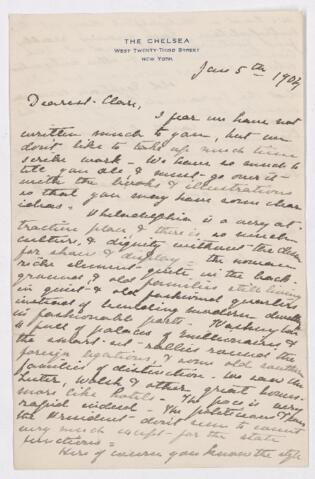 THE CHELSEA
WEST TWENTY-THIRD STREET
NEW YORK
Jan 5th 1904
Dearest Clare,
I fear we have not
written much to you, but we
dont like to take up much time
scribe work - We have so much to
tell you all & must go over it
with the books & illustrations
so that you may have some clear
ideas. Philadelphia is a very at-
traction place & there is so much
culture, & dignity without the desire
for show & display = the
rich element quite in the back-
ground, & old families still living
in quiet & old fashioned quarters
instead of building modern
in fashionable parts - Washington
is full of palaces & millionaires, &
the smart set rallies round the
foreign legations, & some old southern
families of distinction. We saw the
Leiter, Walsh & other great houses
more like hotels - The pace is very
rapid indeed - The politicians & even
the President don't seem to count
very much except for the state
functions =
Here of course you know the style